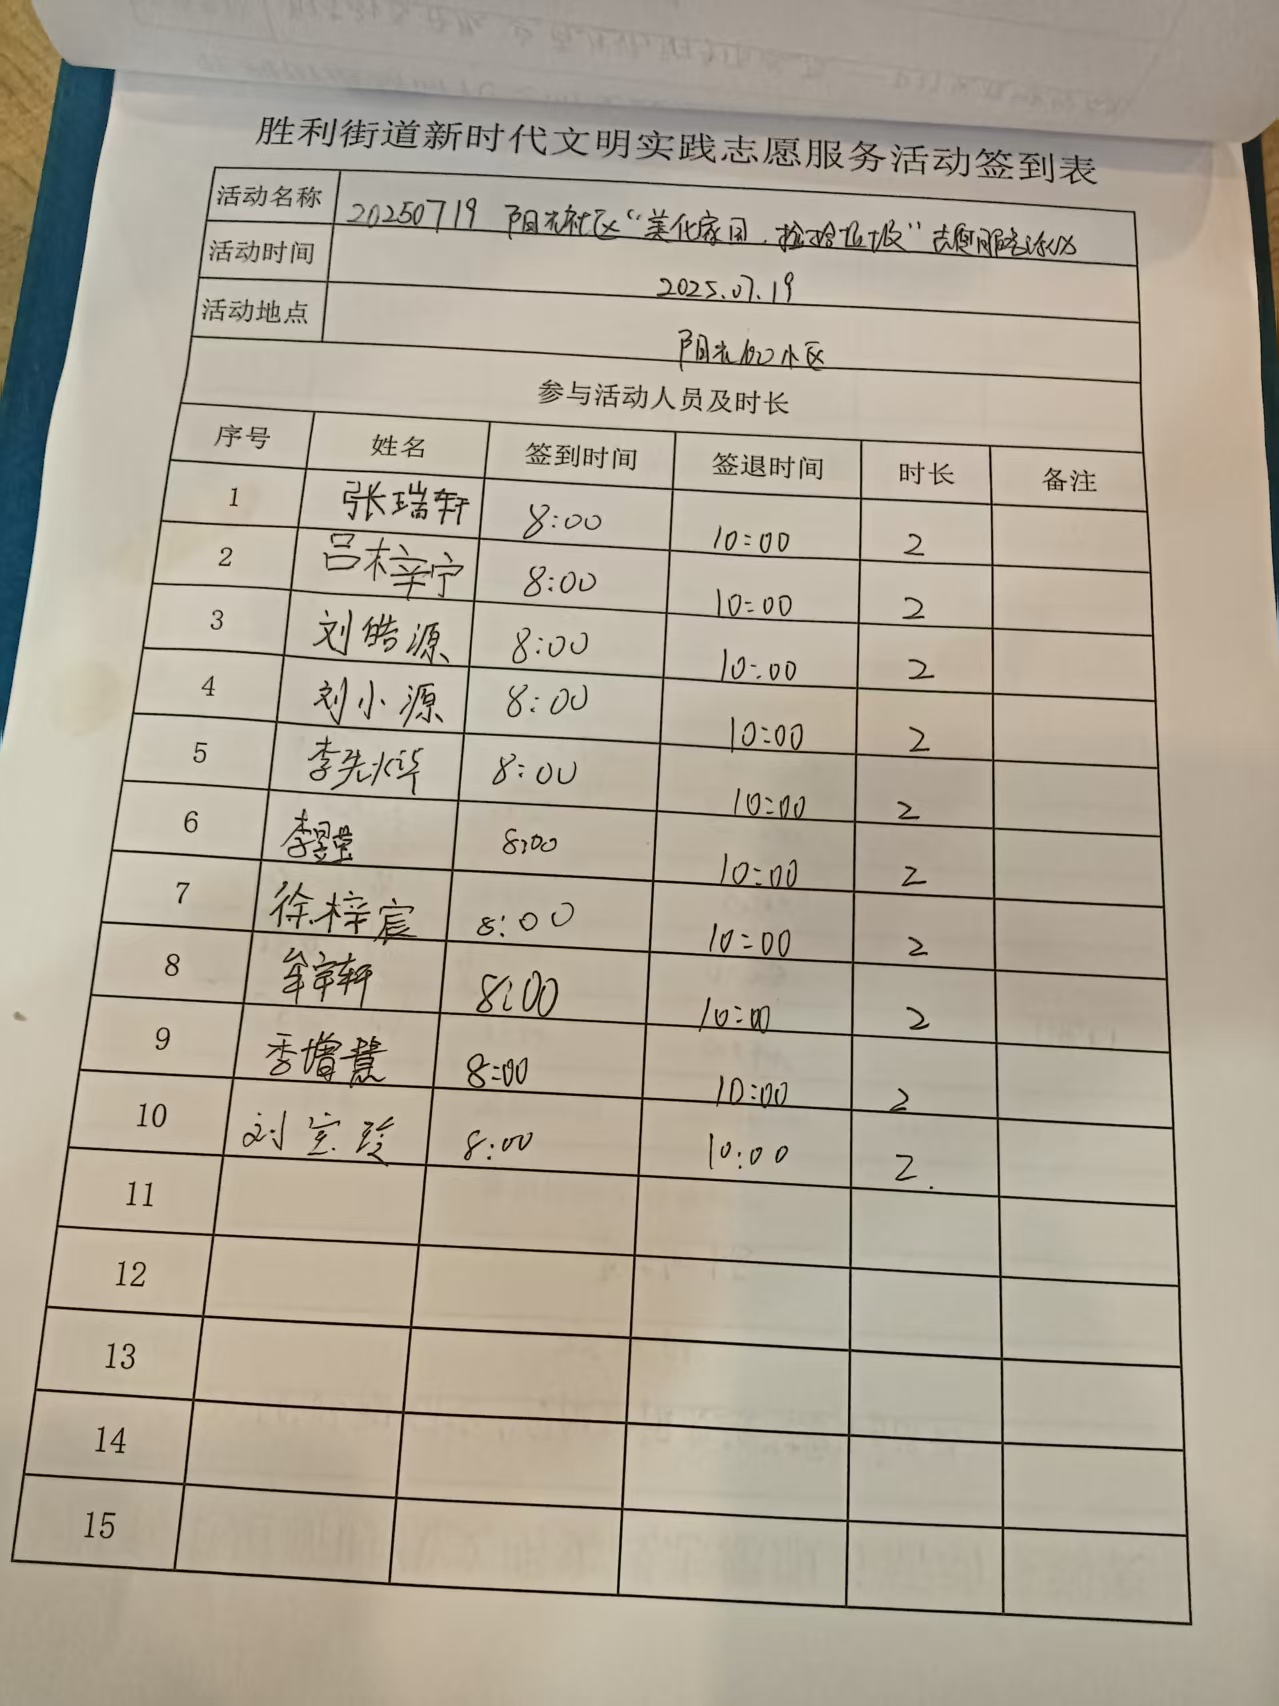 胜利街道新时代文明实践志愿服务活动签到表
活动名称 20250719 阳光社区“美化家园，捡拾垃圾”志愿服务活动
活动时间 2025.07.19
活动地点 阳光 小区
参与活动人员及时长
序号 姓名 签到时间 签退时间 时长 备注
1 张瑞轩 8:00 10:00 2
2 吕梓宁 8:00 10:00 2
3 刘皓源 8:00 10:00 2
4 刘小源 8:00 10:00 2
5 李先烨 8:00 10:00 2
6 李昱莹 8:00 10:00 2
7 徐梓宸 8:00 10:00 2
8 牟宇轩 8:00 10:00 2
9 季增慧 8:00 10:00 2
10 刘 玲 8:00 10:00 2.
11
12
13
14
15